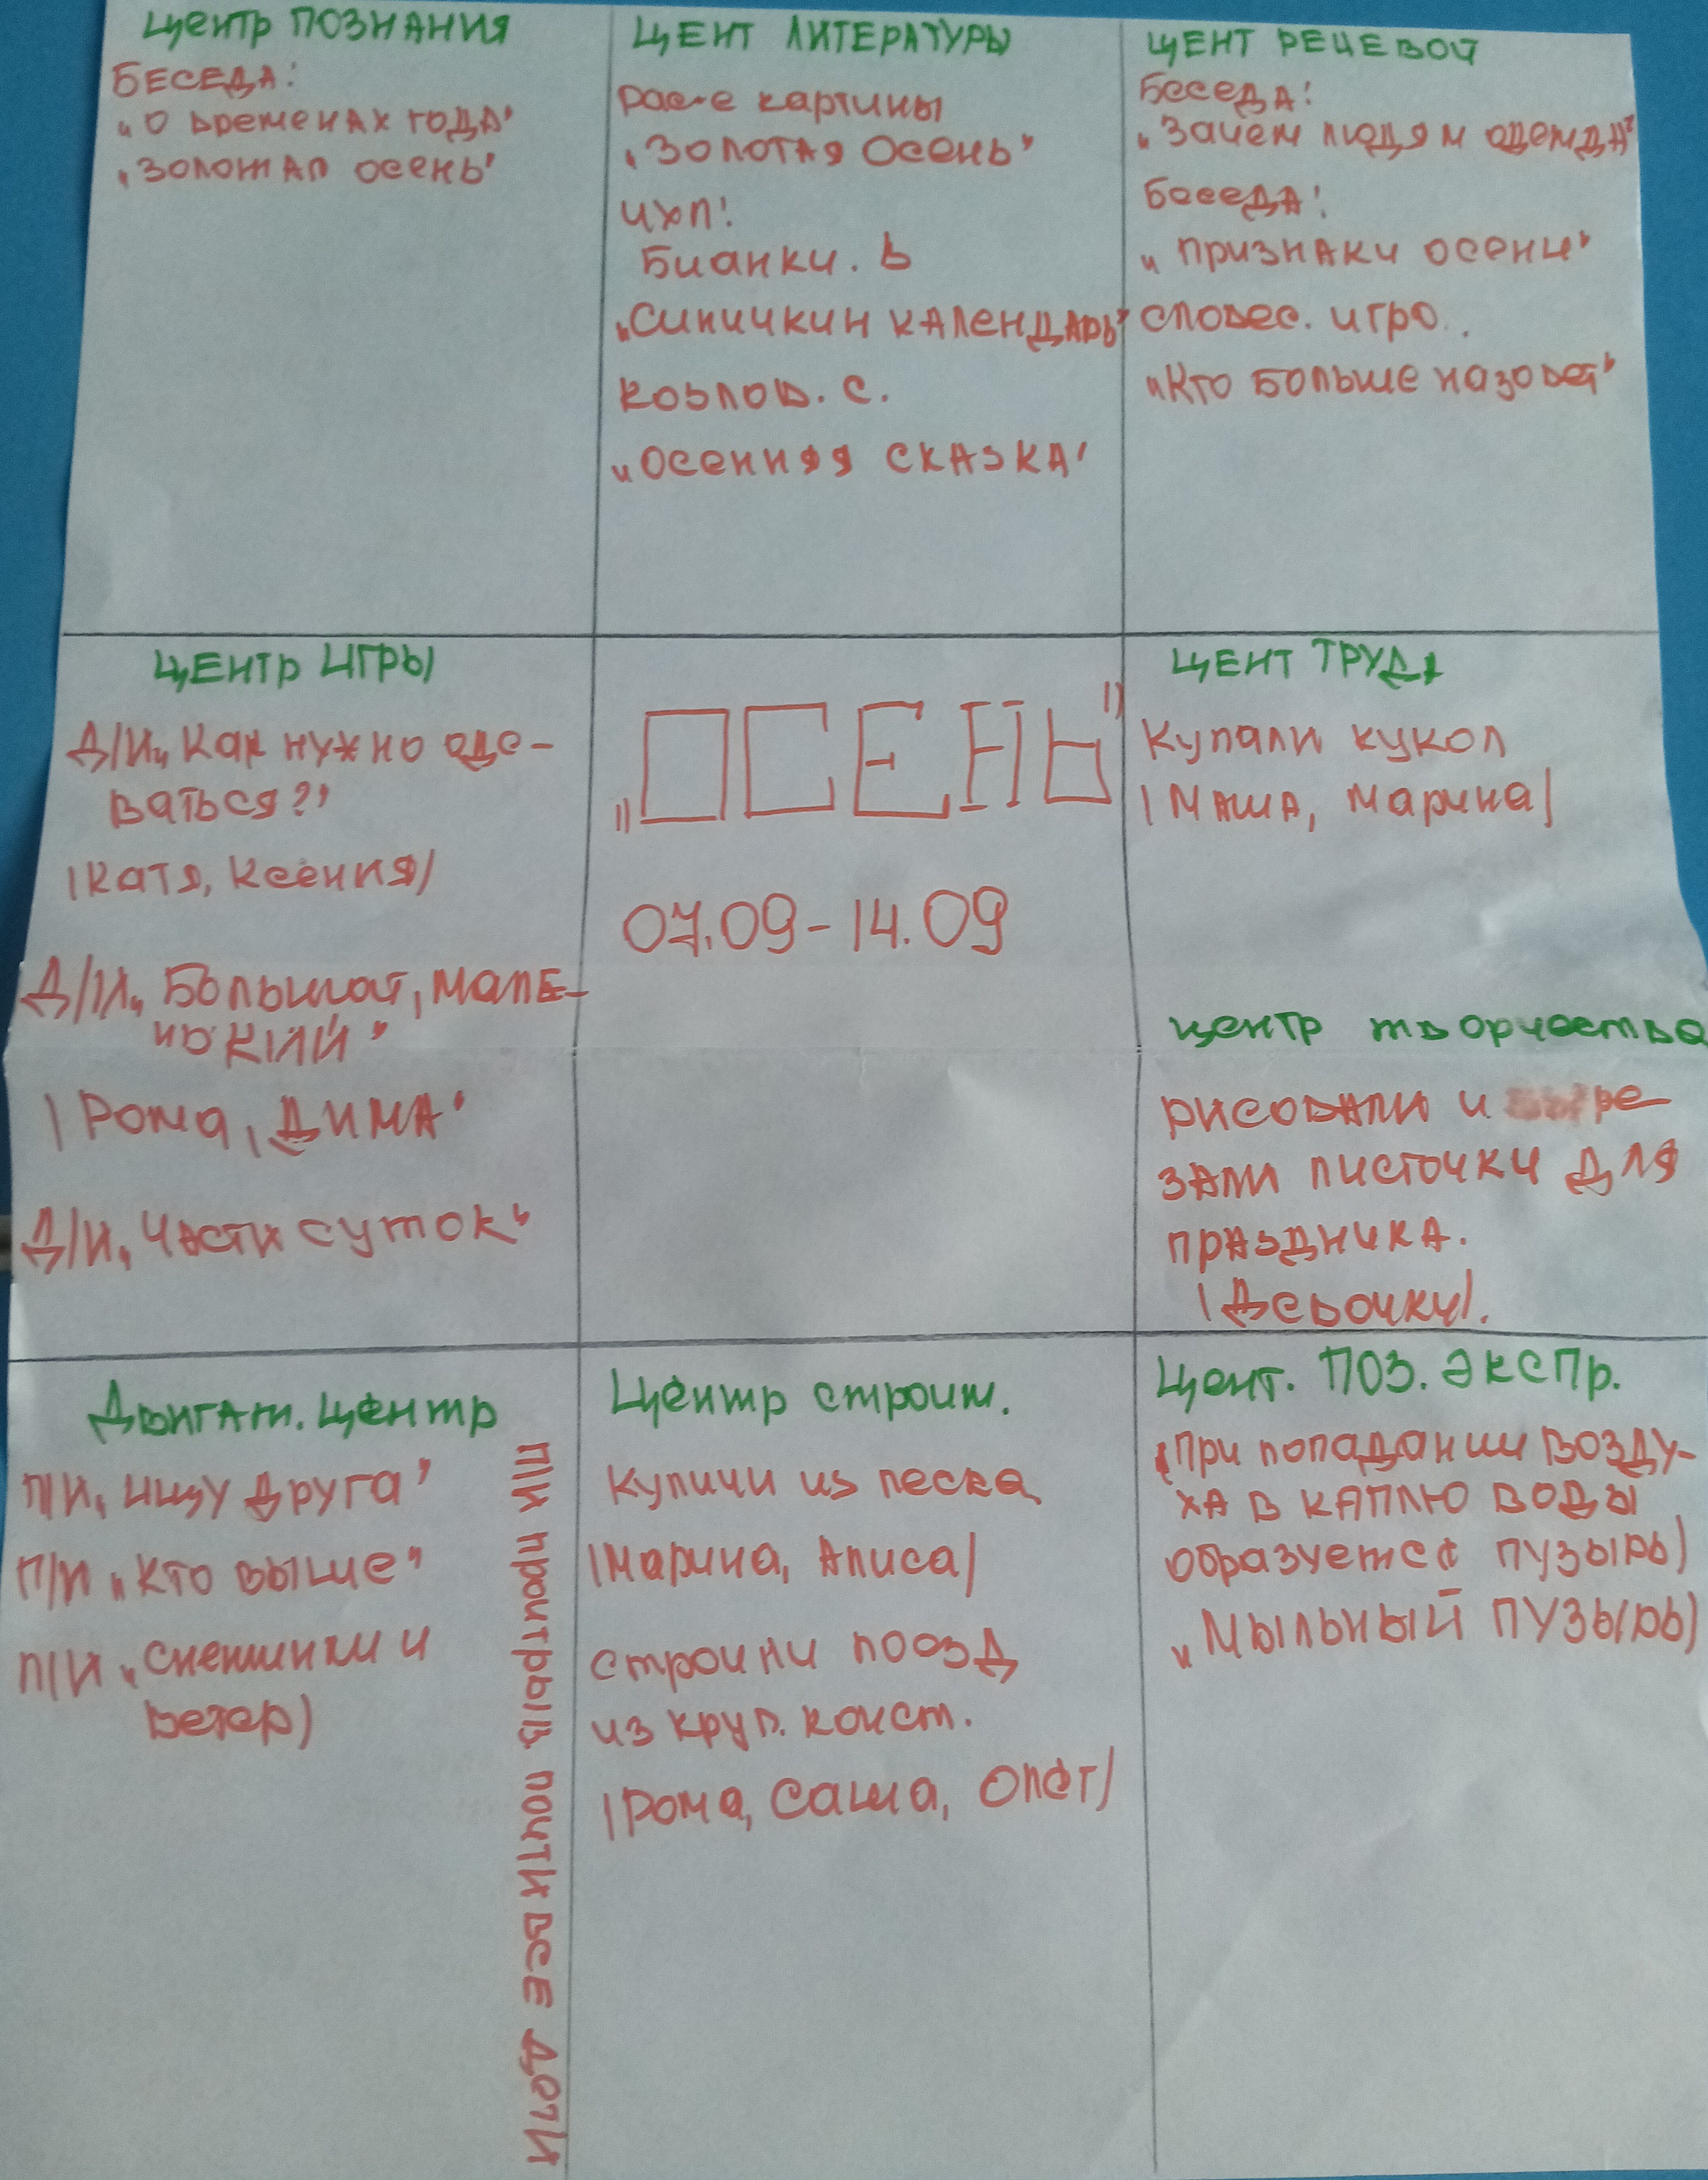 Центр ПОЗНАНИЯ
БЕСЕДА:
„О временах года"
„Золотая осень"
ЦЕНТ ЛИТЕРАТУРЫ
картины
„Золотая осень"
ЧХЛ:
Бианки. В
„Синичкин календарь"
Козлов. С.
„Осенняя сказка"
ЦЕНТ РЕЧЕВОЙ
Беседа:
„Зачем людям одежда"
Беседа:
„Признаки осени"
словес. игро..
„Кто больше назовет"
ЦЕНТР ИГРЫ
Д/И„Как нужно оде-
ваться?"
/Катя, Ксения/
Д/И„Большой, мале-
нький"
/Рома, Дима"
Д/И„Части суток"
„ОСЕНЬ"
07.09-14.09
ЦЕНТ ТРУДА
Купали кукол
/Маша, Марина/
центр творчества
рисовали и выре-
зали листочки для
праздника.
/Девочки/.
Двигат. центр
П/И„Ищу друга"
П/И„Кто выше"
П/И„Снежинки и
ветер)
П/И проигрыв. почти все дети
Центр строит.
Куличи из песка
/Марина, Алиса/
строили поезд
из круп. конст.
/Рома, Саша, Олег/
Цент. ПОЗ. ЭКСПР.
(При попадании возду-
ха в каплю воды
образуется пузырь)
„Мыльный пузырь)